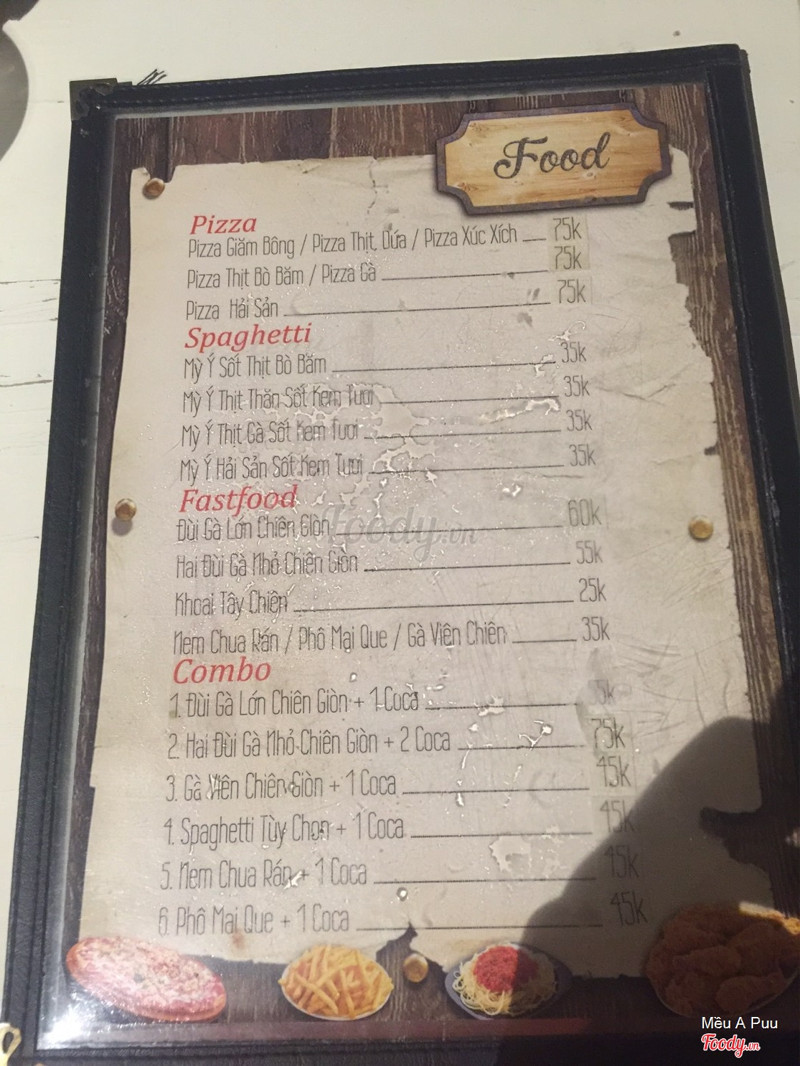 Food
Pizza
Pizza Giăm Bông / Pizza Thịt Dứa / Pizza Xúc Xích 75k
Pizza Thịt Bò Băm / Pizza Gà 75k
Pizza Hải Sản 75k
Spaghetti
Mỳ Ý Sốt Thịt Bò Băm 35k
Mỳ Ý Thịt Thăn Sốt Kem Tươi 35k
Mỳ Ý Thịt Gà Sốt Kem Tươi 35k
Mỳ Ý Hải Sản Sốt Kem Tươi 35k
Fastfood
Đùi Gà Lớn Chiên Giòn 60k
Hai Đùi Gà Nhỏ Chiên Giòn 55k
Khoai Tây Chiên 25k
Nem Chua Rán / Phô Mai Que / Gà Viên Chiên 35k
Combo
1. Đùi Gà Lớn Chiên Giòn + 1 Coca
2. Hai Đùi Gà Nhỏ Chiên Giòn + 2 Coca 75k
3. Gà Viên Chiên Giòn + 1 Coca 45k
4. Spaghetti Tùy Chọn + 1 Coca 45k
5. Nem Chua Rán + 1 Coca 45k
6. Phô Mai Que + 1 Coca 45k
Foody.vn
Mều A Puu
Foody.vn